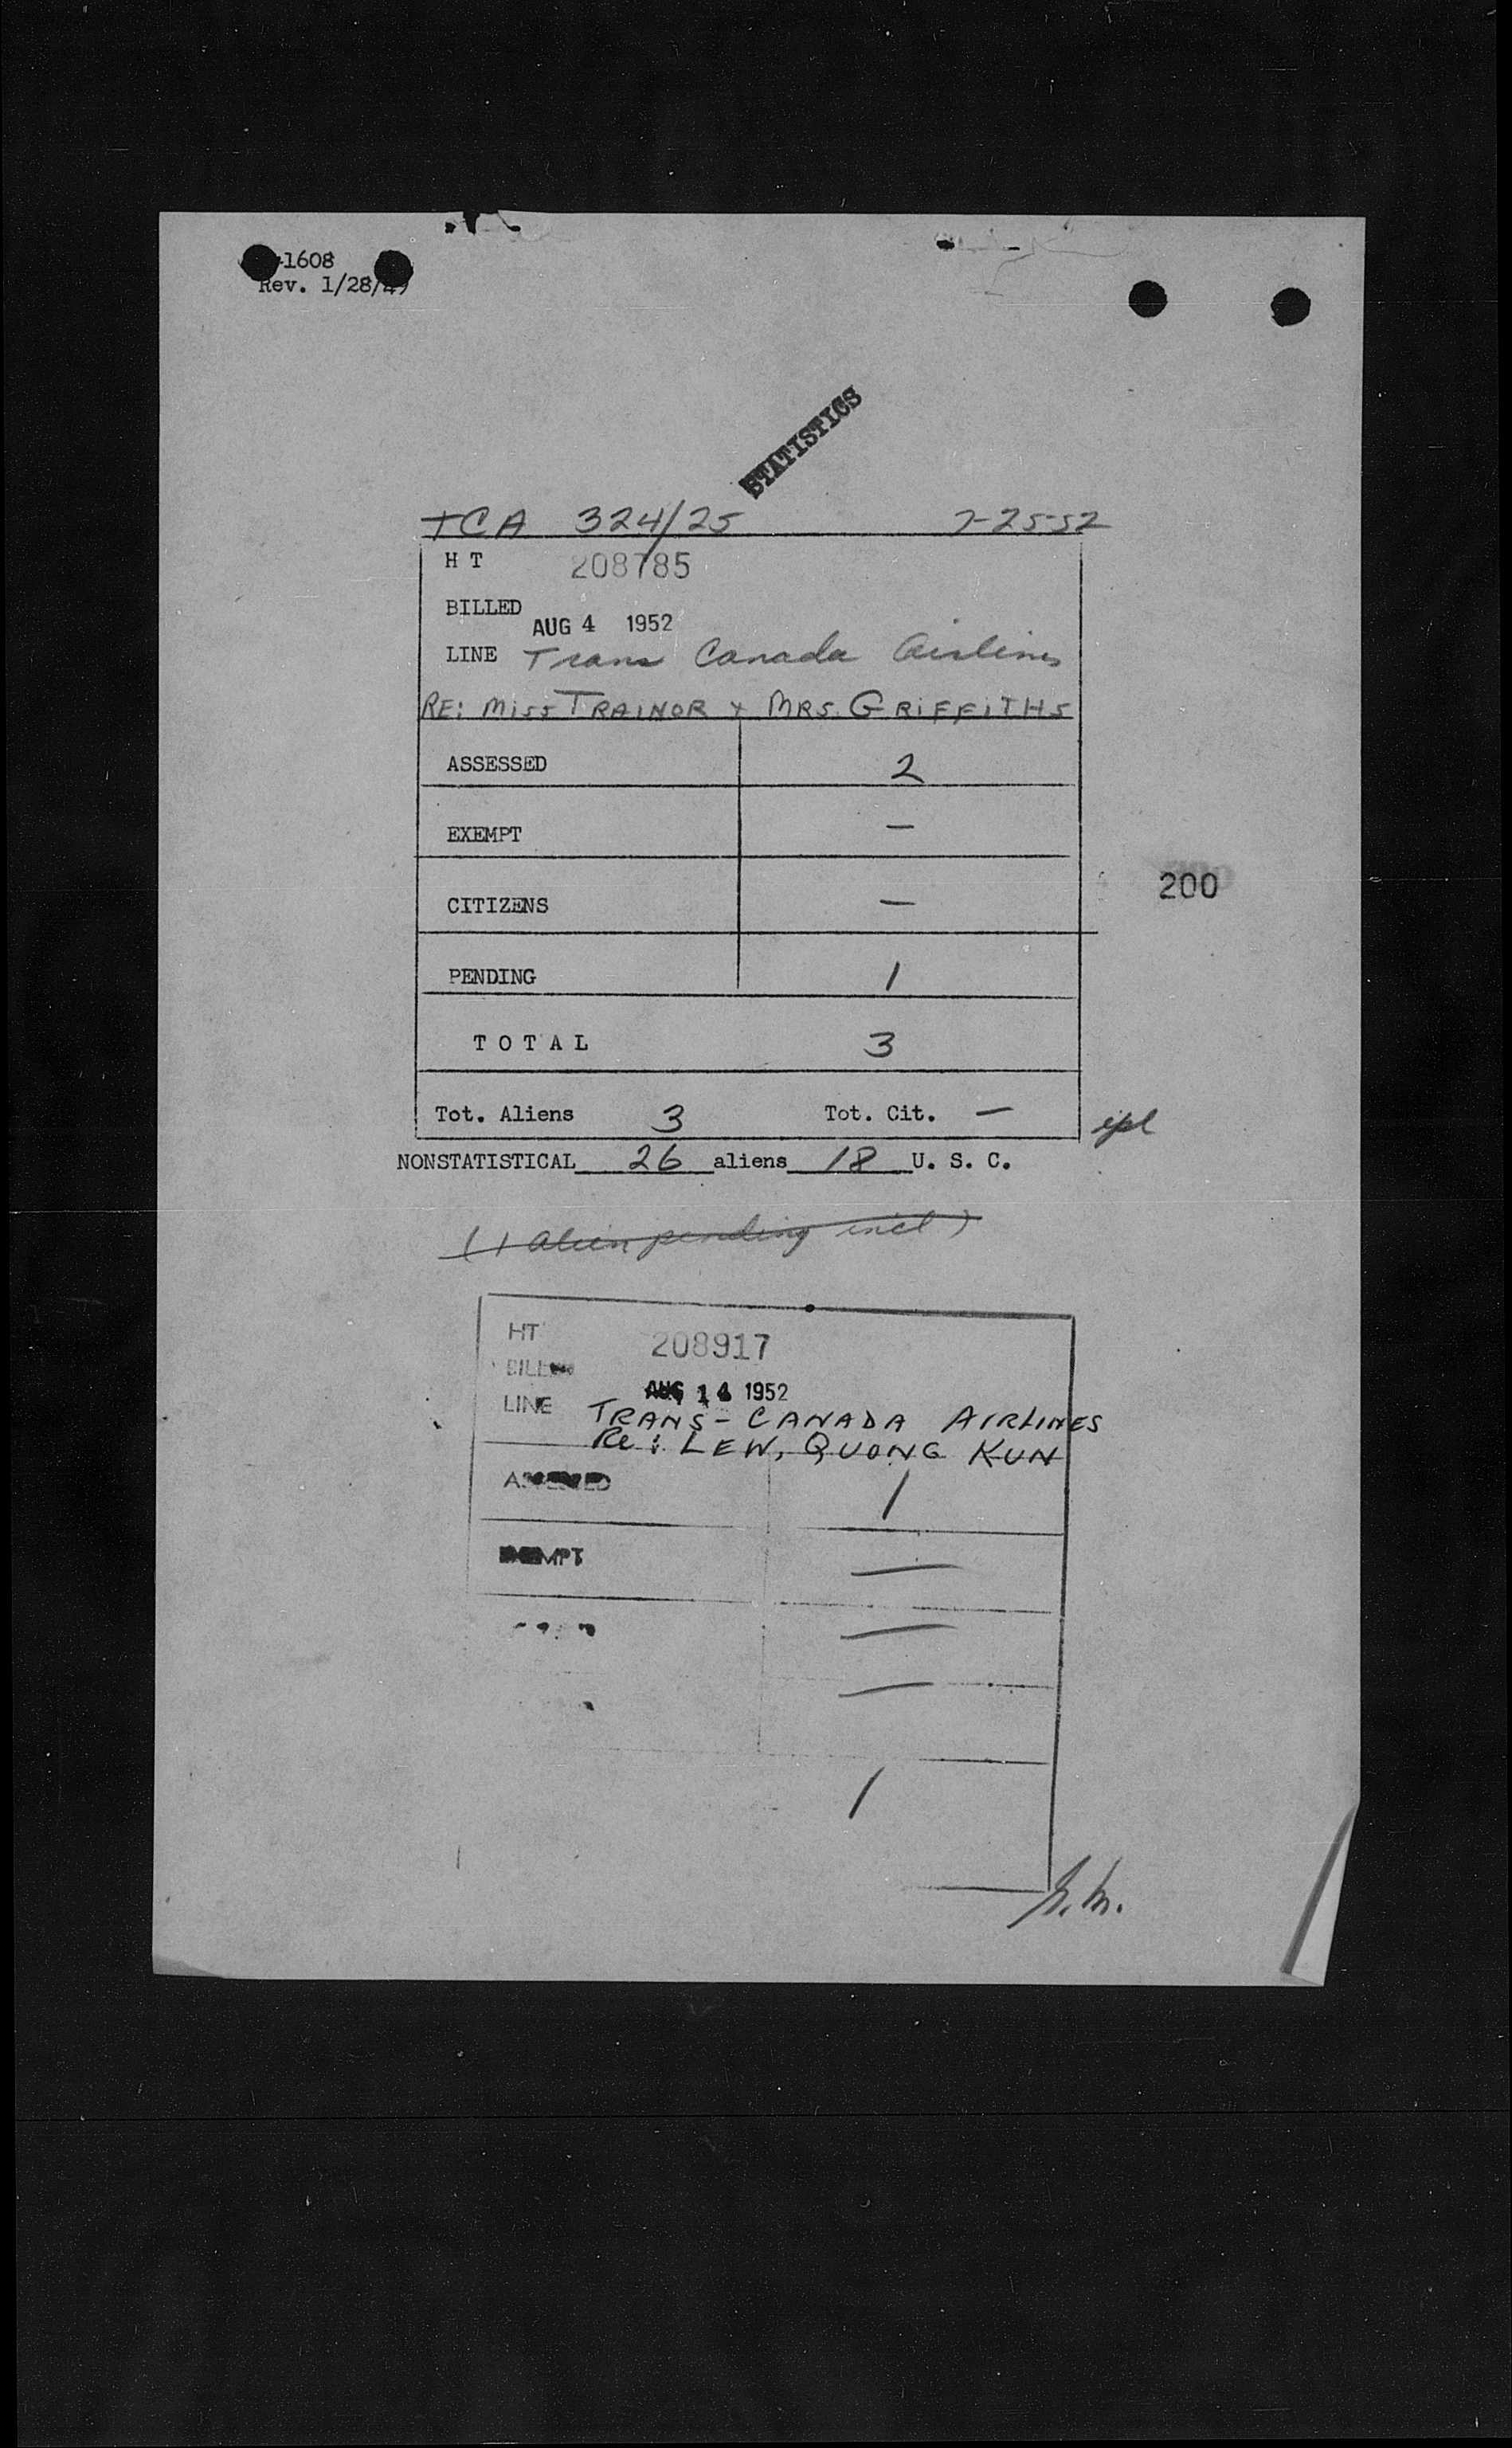 -1608
Rev. 1/28/49
STATISTICS
TCA 324/25 7-25-52
H T 208785
BILLED
AUG 4 1952
LINE Trans Canada Airlines
RE: MISS TRAINOR + MRS. GRIFFITHS
ASSESSED 2
EXEMPT —
CITIZENS —
200
PENDING 1
T O T A L 3
Tot. Aliens 3 Tot. Cit. —
NONSTATISTICAL 26 aliens 18 U. S. C.
(1 alien pending incl)
HT 208917
BILLED
AUG 14 1952
LINE TRANS-CANADA AIRLINES
Re: LEW, QUONG KUN
ASSESSED 1
EXEMPT —
—
—
1